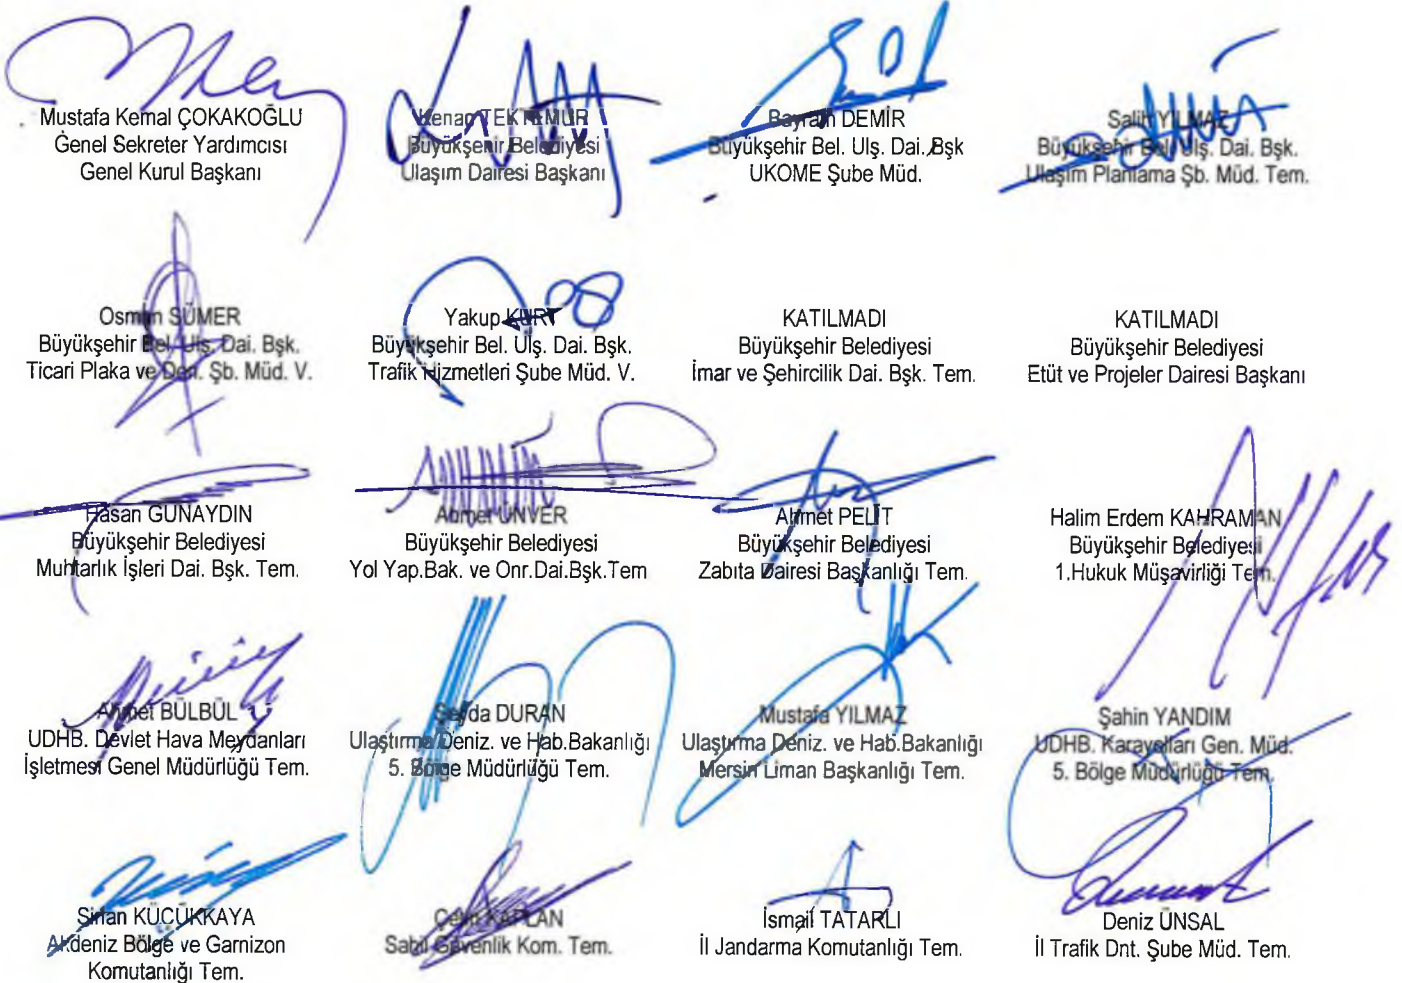 Mustafa Kemal ÇOKAKOĞLU
Genel Sekreter Yardımcısı
Genel Kurul Başkanı
Kenan TEKTEMUR
Büyükşehir Belediyesi
Ulaşım Dairesi Başkanı
Bayram DEMİR
Büyükşehir Bel. Ulş. Dai. Bşk
UKOME Şube Müd.
Salih YILMAZ
Büyükşehir Bel. Ulş. Dai. Bşk.
Ulaşım Planlama Şb. Müd. Tem.
Osman SÜMER
Büyükşehir Bel. Ulş. Dai. Bşk.
Ticari Plaka ve Den. Şb. Müd. V.
Yakup KURT
Büyükşehir Bel. Ulş. Dai. Bşk.
Trafik Hizmetleri Şube Müd. V.
KATILMADI
Büyükşehir Belediyesi
İmar ve Şehircilik Dai. Bşk. Tem.
KATILMADI
Büyükşehir Belediyesi
Etüt ve Projeler Dairesi Başkanı
Hasan GÜNAYDIN
Büyükşehir Belediyesi
Muhtarlık İşleri Dai. Bşk. Tem.
Ahmet ÜNVER
Büyükşehir Belediyesi
Yol Yap.Bak. ve Onr.Dai.Bşk.Tem
Ahmet PELİT
Büyükşehir Belediyesi
Zabıta Dairesi Başkanlığı Tem.
Halim Erdem KAHRAMAN
Büyükşehir Belediyesi
1.Hukuk Müşavirliği Tem.
Ahmet BÜLBÜL
UDHB. Devlet Hava Meydanları
İşletmesi Genel Müdürlüğü Tem.
Şeyda DURAN
Ulaştırma Deniz. ve Hab.Bakanlığı
5. Bölge Müdürlüğü Tem.
Mustafa YILMAZ
Ulaştırma Deniz. ve Hab.Bakanlığı
Mersin Liman Başkanlığı Tem.
Şahin YANDIM
UDHB. Karayolları Gen. Müd.
5. Bölge Müdürlüğü Tem.
KÜÇÜKKAYA
Akdeniz Bölge ve Garnizon
Komutanlığı Tem.
Çetin KAPLAN
Sahil Güvenlik Kom. Tem.
İsmail TATARLI
İl Jandarma Komutanlığı Tem.
Deniz ÜNSAL
İl Trafik Dnt. Şube Müd. Tem.